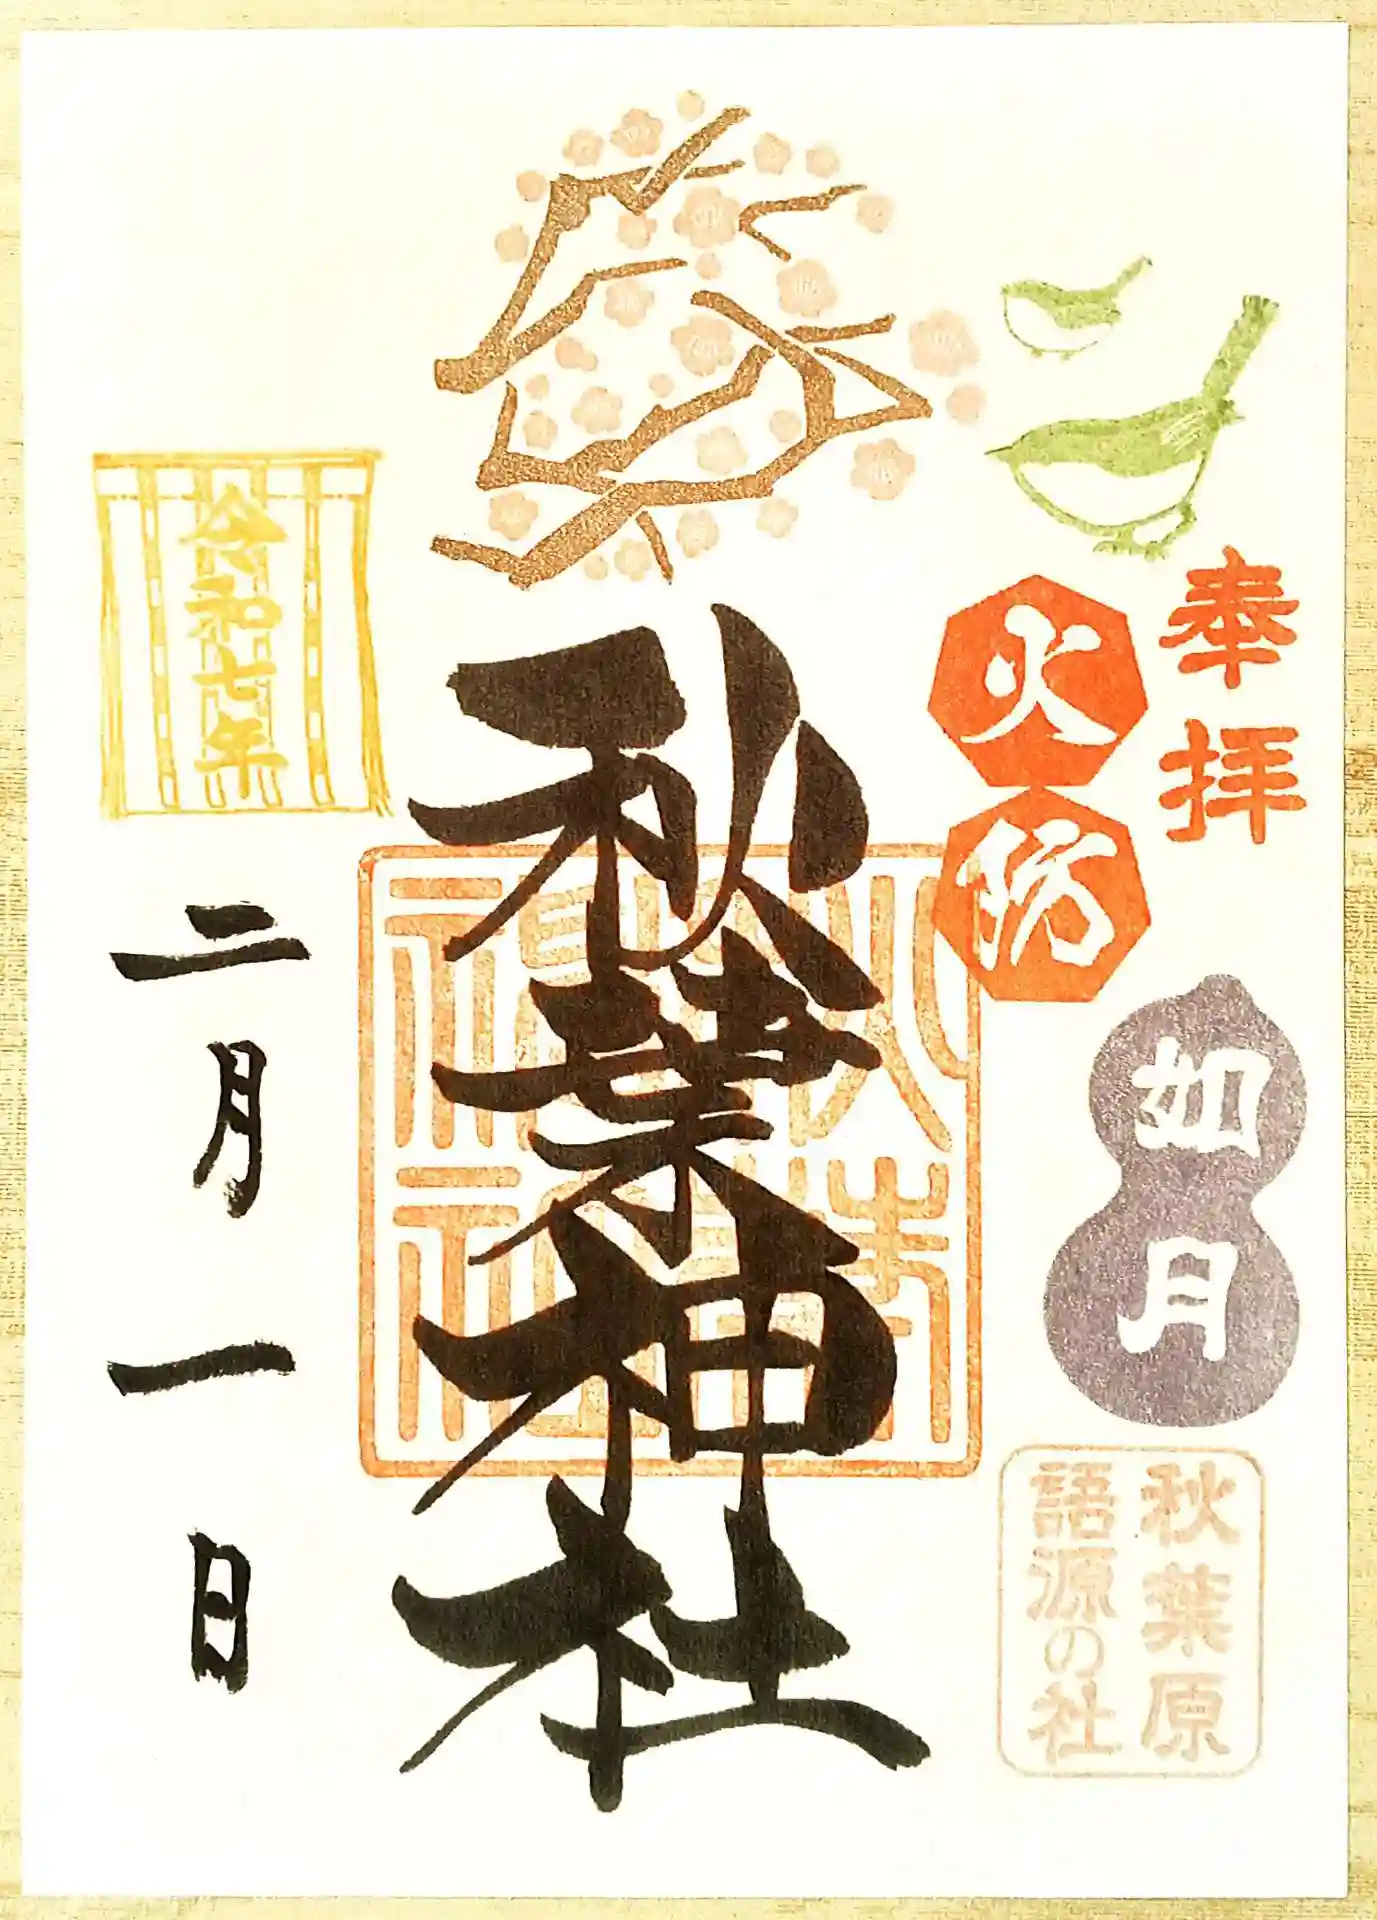 奉拝
火防
如月
秋葉原
語源の社
秋葉神社
令和七年
二月一日